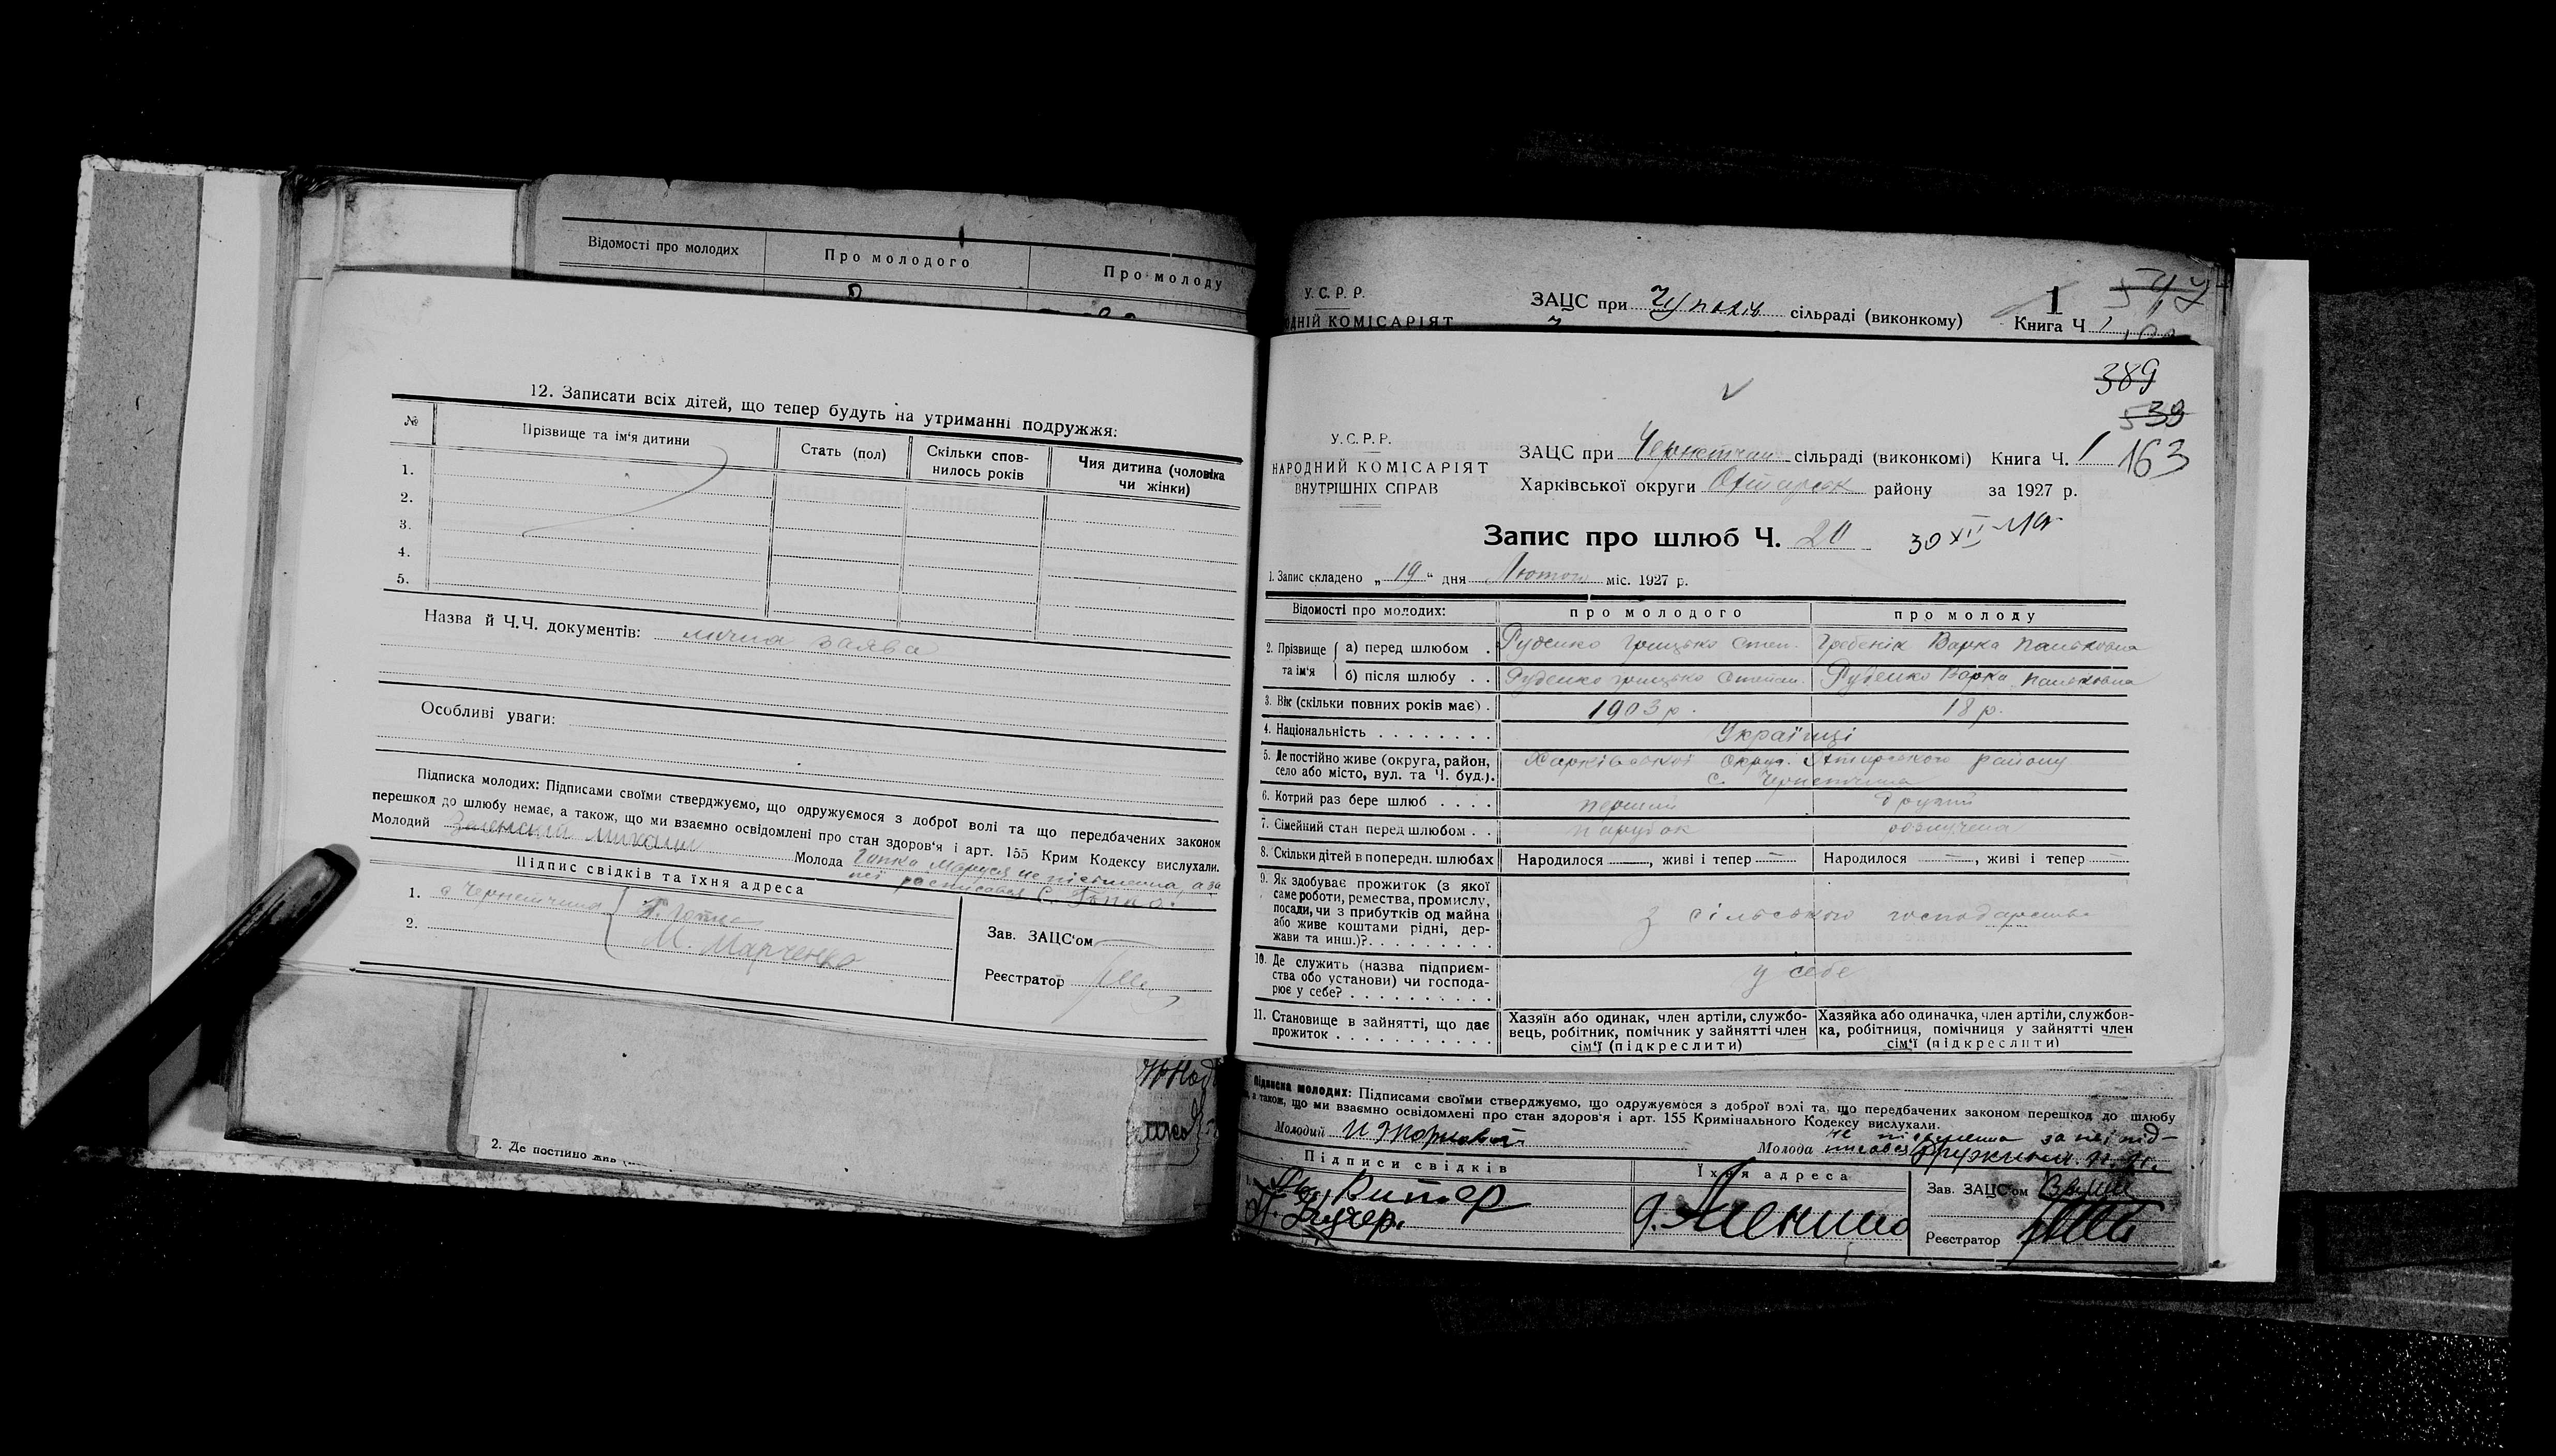 Відомості про молодих
Про молодого
Про молоду
12. Записати всіх дітей, що тепер будуть на утриманні подружжя:
№
Прізвище та ім'я дитини
Стать (пол)
Скільки спов-
нилось років
Чия дитина (чоловіка
чи жінки)
1.
2.
3.
4.
5.
Назва й Ч.Ч. документів: лична заява
Особливі уваги:
Підписка молодих: Підписами своїми стверджуємо, що одружуємося з доброї волі та що передбачених законом
перешкод до шлюбу немає, а також, що ми взаємно освідомлені про стан здоров'я і арт. 155 Крим Кодексу вислухали.
Молодий Зеленский Михаил
Молода Гапка Маруся не пісьменна, а за
неї росписався С. Гапка.
Підпис свідків та їхня адреса
1. с Чернетчина
2.
М. Марченко
Зав. ЗАЦС'ом
Реєстратор
2. Де постійно
У.С.Р.Р.
ЗАЦС при сільраді (виконкому)
1
547
Книга Ч 1
КОМІСАРІЯТ
389
539
163
У.С.Р.Р.
НАРОДНИЙ КОМІСАРІЯТ
ВНУТРІШНІХ СПРАВ
ЗАЦС при Чернетчин сільраді (виконкомі) Книга Ч. 1
Харківської округи Охтирськ району за 1927 р.
Запис про шлюб Ч. 20
30 XII
1. Запис складено „19“ дня Лютого міс. 1927 р.
Відомості про молодих:
про молодого
про молоду
2. Прізвище та ім'я
а) перед шлюбом . Руденко Грицько Степ. Гребенік Варка Паньковна
б) після шлюбу . . Руденко Грицько Степан. Руденко Варка Паньковна
3. Вік (скільки повних років має) . 1903 р. 18 р.
4. Національність . . . . . . . . Українці
5. Де постійно живе (округа, район, Харківської Округ. Охтирського району
село або місто, вул. та Ч. буд.). с. Чернетчина
6. Котрий раз бере шлюб . . . . перший другий
7. Сімейний стан перед шлюбом . . парубок розлучена
8. Скільки дітей в попередн. шлюбах Народилося —, живі і тепер — Народилося —, живі і тепер —
9. Як здобуває прожиток (з якої
саме роботи, ремества, промислу,
посади, чи з прибутків од майна
або живе коштами рідні, дер-
жави та инш.)?. . . . . . . . .
З сільського господарства
10. Де служить (назва підприєм-
ства обо установи) чи господа-
рює у себе? . . . . . . . . . .
у себе
11. Становище в зайнятті, що дає
прожиток . . . . . . . . . . .
Хазяїн або одинак, член артіли, службо-
вець, робітник, помічник у зайнятті член
сім'ї (підкреслити)
Хазяйка або одиначка, член артіли, службов-
ка, робітниця, помічниця у зайнятті член
сім'ї (підкреслити)
Підписка молодих: Підписами своїми стверджуємо, що одружуємося з доброї волі та, що передбачених законом перешкод до шлюбу
а також, що ми взаємно освідомлені про стан здоров'я і арт. 155 Кримінального Кодексу вислухали.
Молодий
Молода не пісьменна за неї під-
писався
Підписи свідків
Їхня адреса
Кучер.
Зав. ЗАЦС'ом
Реєстратор